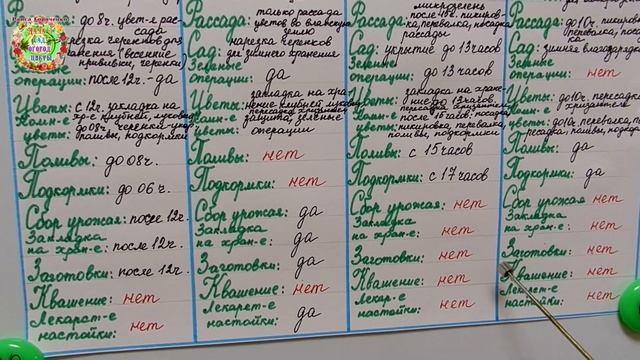 Рассада: до 8ч. цвет-е рас-
сада
нарезка черенков для
(весенние
прививки, черенки)
Зеленые
операции: после 12ч. - да
Цветы: с 12ч. закладка на
Комн-е хр-е клубней, луковиц
цветы: до 08ч. черенка
поливы, подкормки
Поливы: до 08ч.
Подкормки: до 06ч.
Сбор урожая: после 12ч.
Закладка
на хран-е: после 12ч.
Заготовки: после 12ч.
Квашение: нет
Лекарст-е
настойки: нет
Рассада: только рассада
цветов во влажную
землю
Сад: нарезка черенков
для зимнего хранения
Зеленые
операции: да
Цветы: закладка на хра-
Комн-е нение клубней, луковиц
цветы: защита, зеленые
операции
Поливы: нет
Подкормки: нет
Сбор урожая: да
Закладка
на хран-е: да
Заготовки: да
Квашение: нет
Лекарст-е
настойки: да
микрозелень
Рассада: после 15ч. пикиров-
ка, перевалка, посадка
рассады
Сад: укрытие до 13 часов
Зеленые
операции: до 13 часов
Цветы: закладка на хране-
Комн-е ние до 13 часов
после 15 часов: посадка
цветы: пикировка, перевалка,
поливы, подкормки
Поливы: с 15 часов
Подкормки: с 17 часов
Сбор урожая: нет
Закладка
на хран-е: нет
Заготовки: нет
Квашение: нет
Лекар-е
настойки: нет
Рассада: до 10ч. пикировка,
перевалка, посад-
ка
Сад: зимняя влагозарядка
Зеленые
операции: нет
Цветы: до 10ч. пересадка
Комн-е хризантем
цветы: до 10ч. перевалка, пе-
ресадка, поливы, подкорм
Поливы: да
Подкормки: да
Сбор урожая: нет
Закладка
на хран-е: нет
Заготовки: нет
Квашение: нет
Лекарст-е
настойки: нет